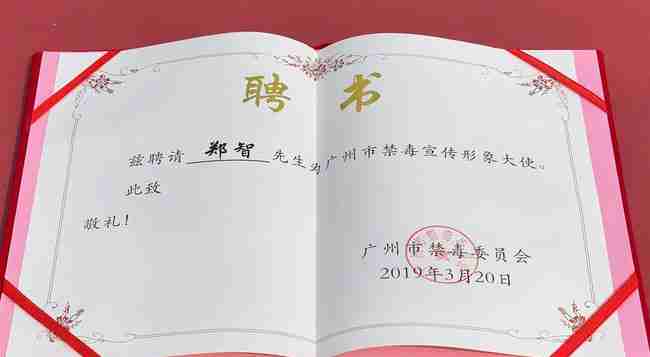 聘书
兹聘请 郑智 先生为广州市禁毒宣传形象大使。
此致
敬礼!
广州市禁毒委员会
2019年3月20日